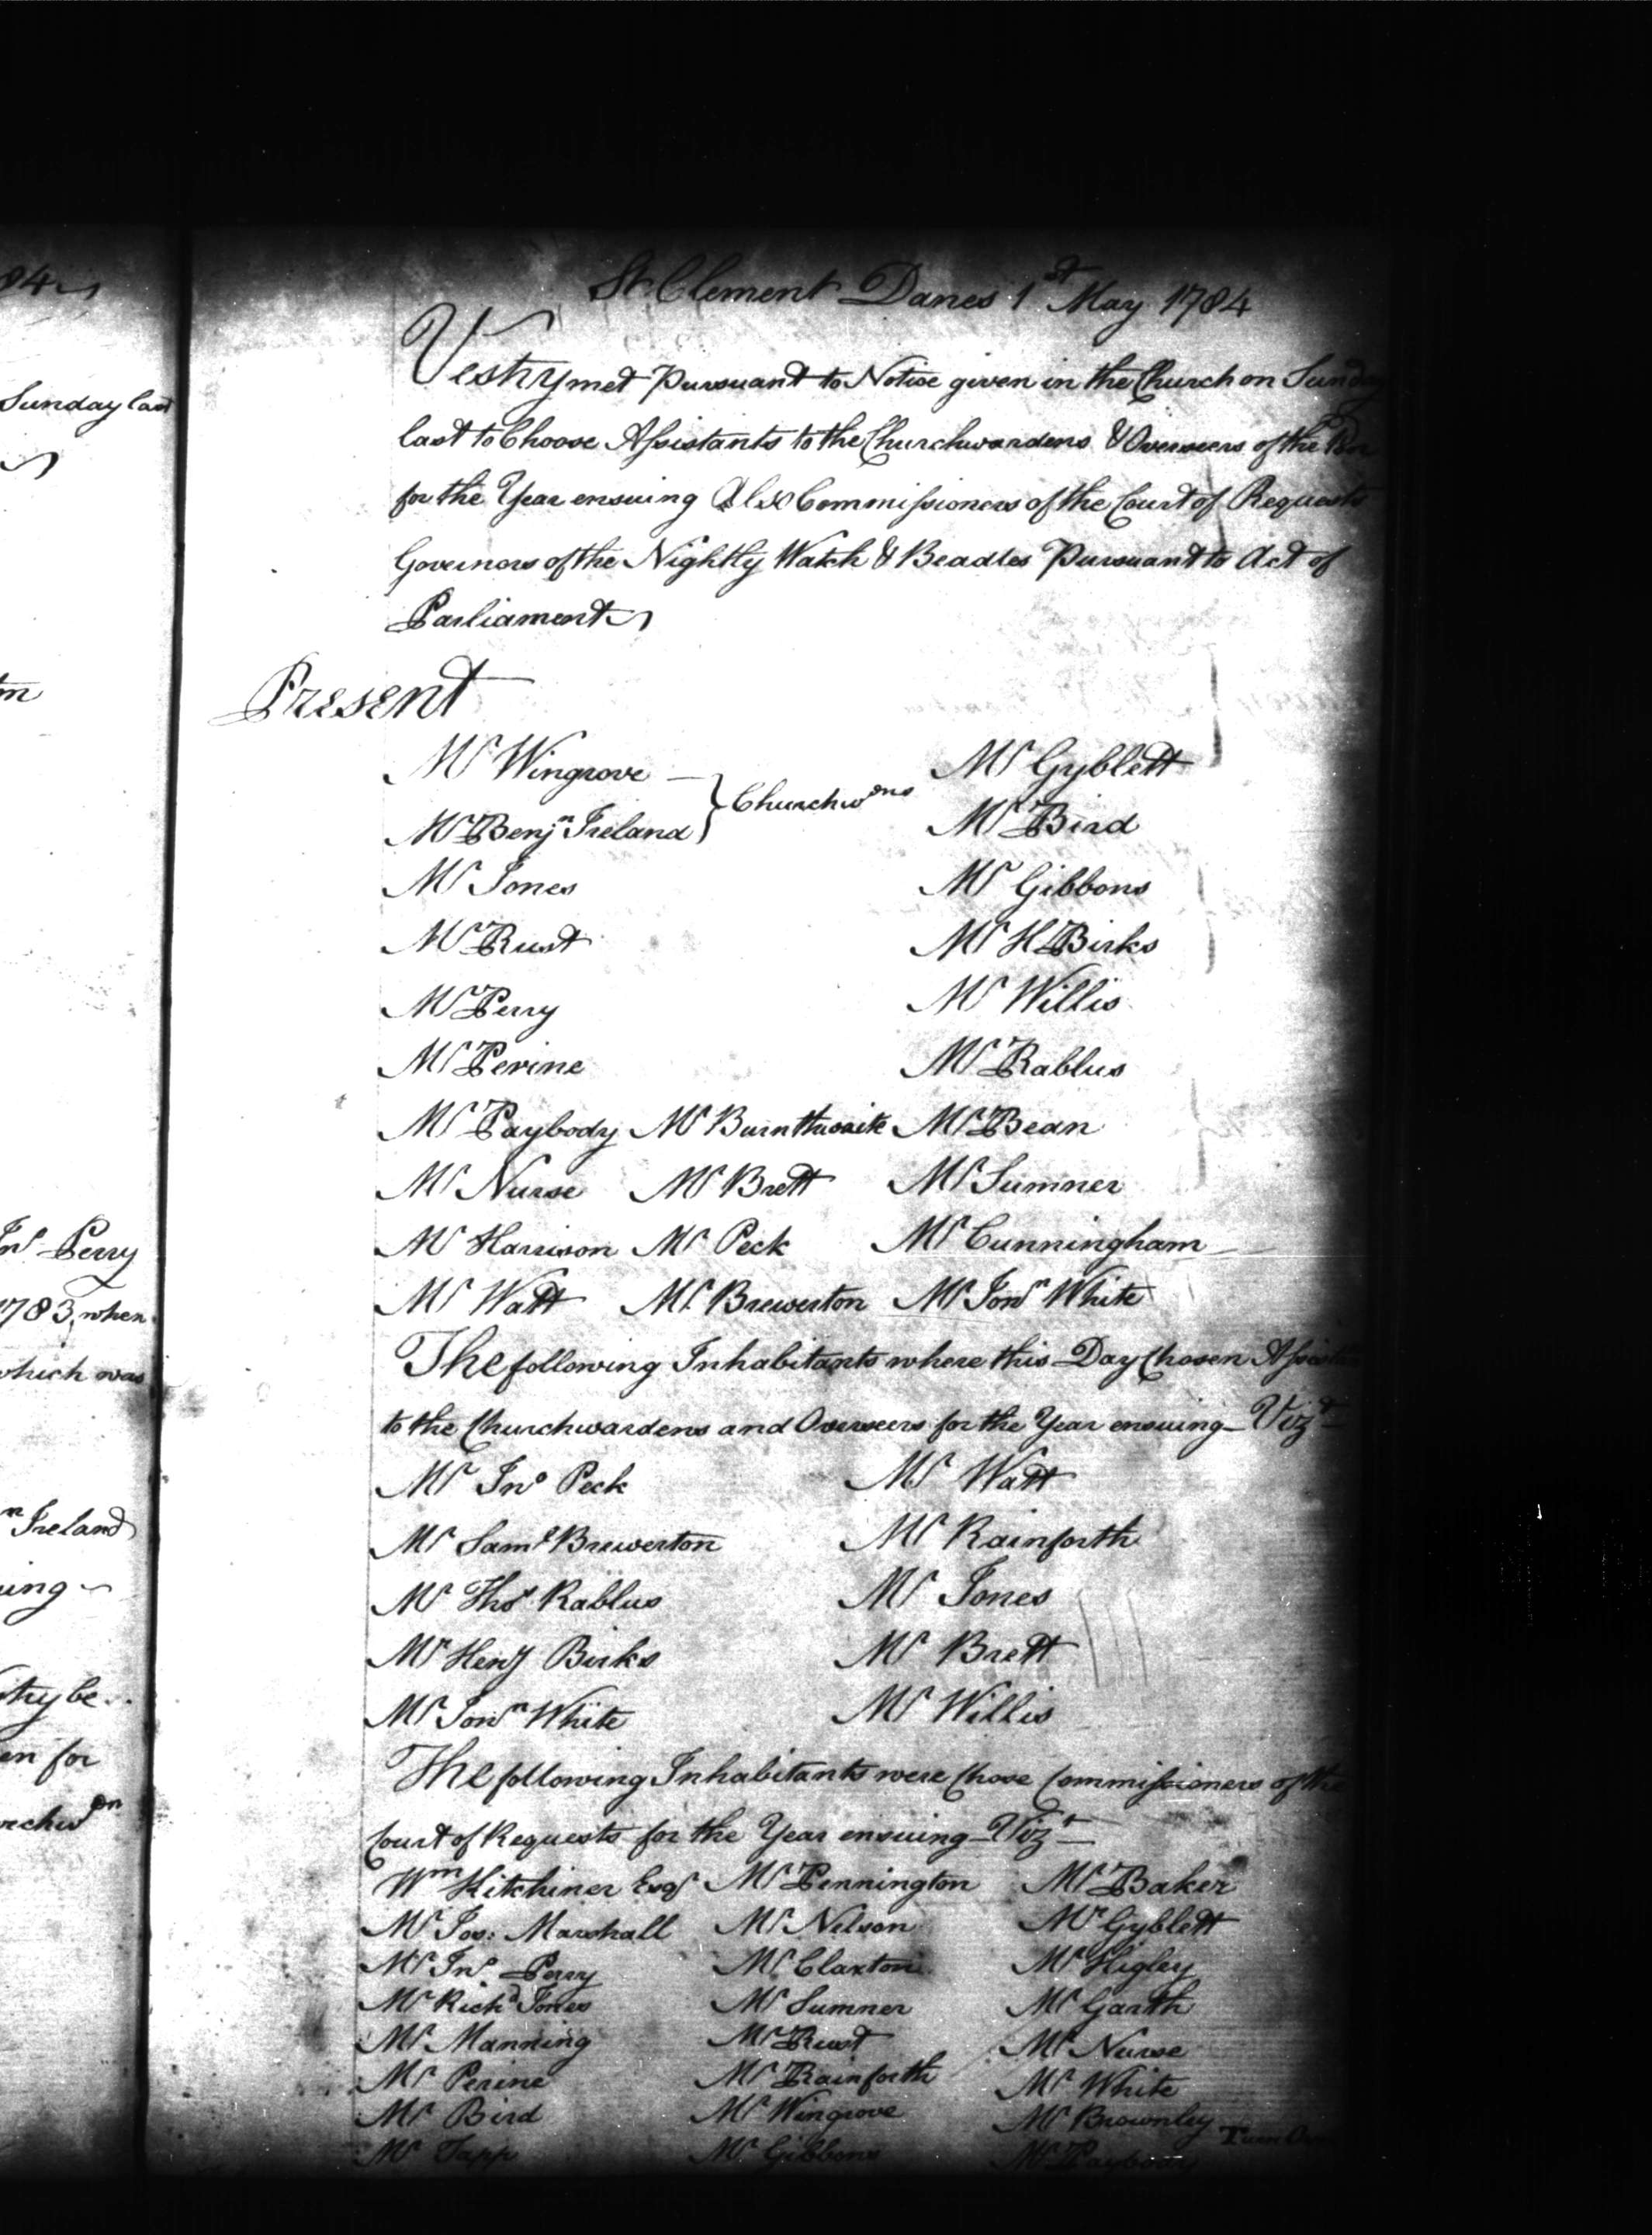 84
Sunday last
m
Jnº Perry
1783, when
which was
n Ireland
uing
stry be
en for
rchwdn
St. Clement Danes 1st May 1784
Vestry met Pursuant to Notice given in the Church on Sunday
last to Choose Assistants to the Churchwardens & Overseers of the Poor
for the Year ensuing Also Commissioners of the Court of Requests
Governors of the Nightly Watch & Beadles Pursuant to Act of
Parliament
Present
Mr Wingrove Mr Gyblett
Churchwdns
Mr Benjn Ireland Mr Bird
Mr Jones Mr Gibbons
Mr Rust Mr H Birks
Mr Perry Mr Willis
Mr Perine Mr Rablus
Mr Paybody Mr Burnthwaite Mr Bean
Mr Nurse Mr Brett Mr Sumner
Mr Harrison Mr Peck Mr Cunningham
Mr Watt Mr Brewerton Mr Jonn White
The following Inhabitants where this Day Chosen Assistants
to the Churchwardens and Overseers for the Year ensuing Vizt
Mr Jnº Peck Mr Watt
Mr Saml Brewerton Mr Rainforth
Mr Thos Rablus Mr Jones
Mr Heny Birks Mr Brett
Mr Jonn White Mr Willis
The following Inhabitants were Chose Commissioners of the
Court of Requests for the Year ensuing Vizt
Wm Kitchiner Esqr Mr Pennington Mr Baker
Mr Jos: Marshall Mr Nelson Mr Gyblett
Mr Jnº Perry Mr Claxton Mr Higley
Mr Richd Jones Mr Sumner Mr Garth
Mr Manning Mr Rust Mr Nurse
Mr Perine Mr Rainforth Mr White
Mr Bird Mr Wingrove Mr Brownley
Turn Over
Mr Tapp Mr Gibbons Mr Paybody